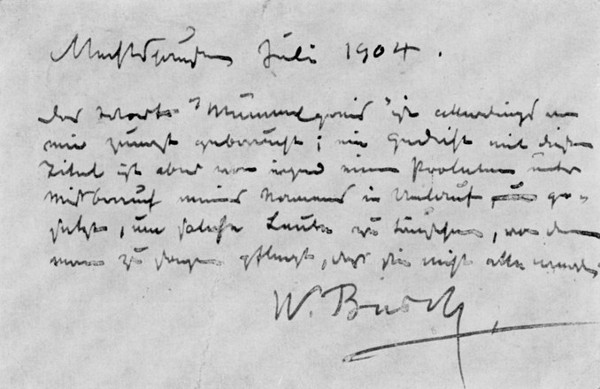 Mechtshausen Juli 1904.
Das Wort "Mümmelgreis" ist allerdings von
mir zuerst gebraucht; ein Gedicht mit diesem
Titel ist aber von irgend einem Proleten unter
Mißbrauch meines Namens in Umlauf ge-
setzt, um solche Leute zu täuschen, von denen
man zu sagen pflegt, daß sie nicht alle werden.
W. Busch